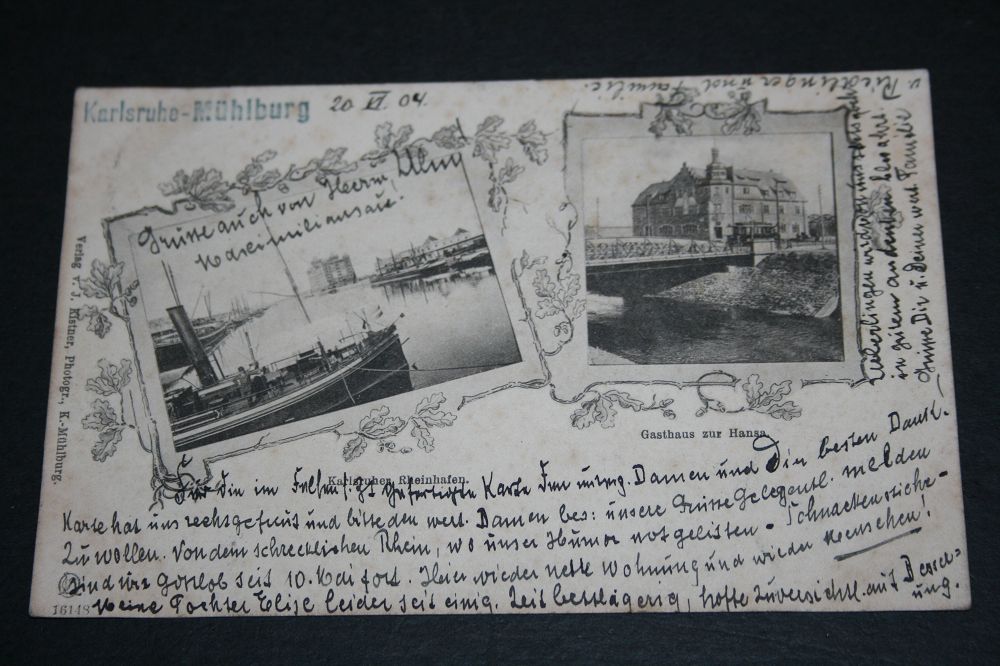 Karlsruhe-Mühlburg 20 VI. 04.
Grüsse auch von Herrn Ulm
Maximiliansau!
Verlag v. J. Kistner, Photogr., K.-Mühlburg.
Karlsruher Rheinhafen.
Gasthaus zur Hansa.
Für Die im Felsen gefertigte Karte Ihnen Damen und Dir besten Dank.
Karte hat uns recht gefreut und bitte den wert. Damen bes: unsere Grüsse gelegentl. melden
zu wollen. Von dem schrecklichen Rhein, wo unser Humor not gelitten - Schnackenstiche -
sind wir Gottlob seit 10. Mai fort. Hier wieder nette Wohnung und wieder Menschen!
Meine Tochter Elise leider seit einig. Zeit bettlägerig, hoffe zuversichtl. auf Besse=
rung.
16148
Ueberlingen
in gutem Andenken bewahrt.
Grüsse Dir u. Deiner wert Familie
v. Riedlinger und Familie.